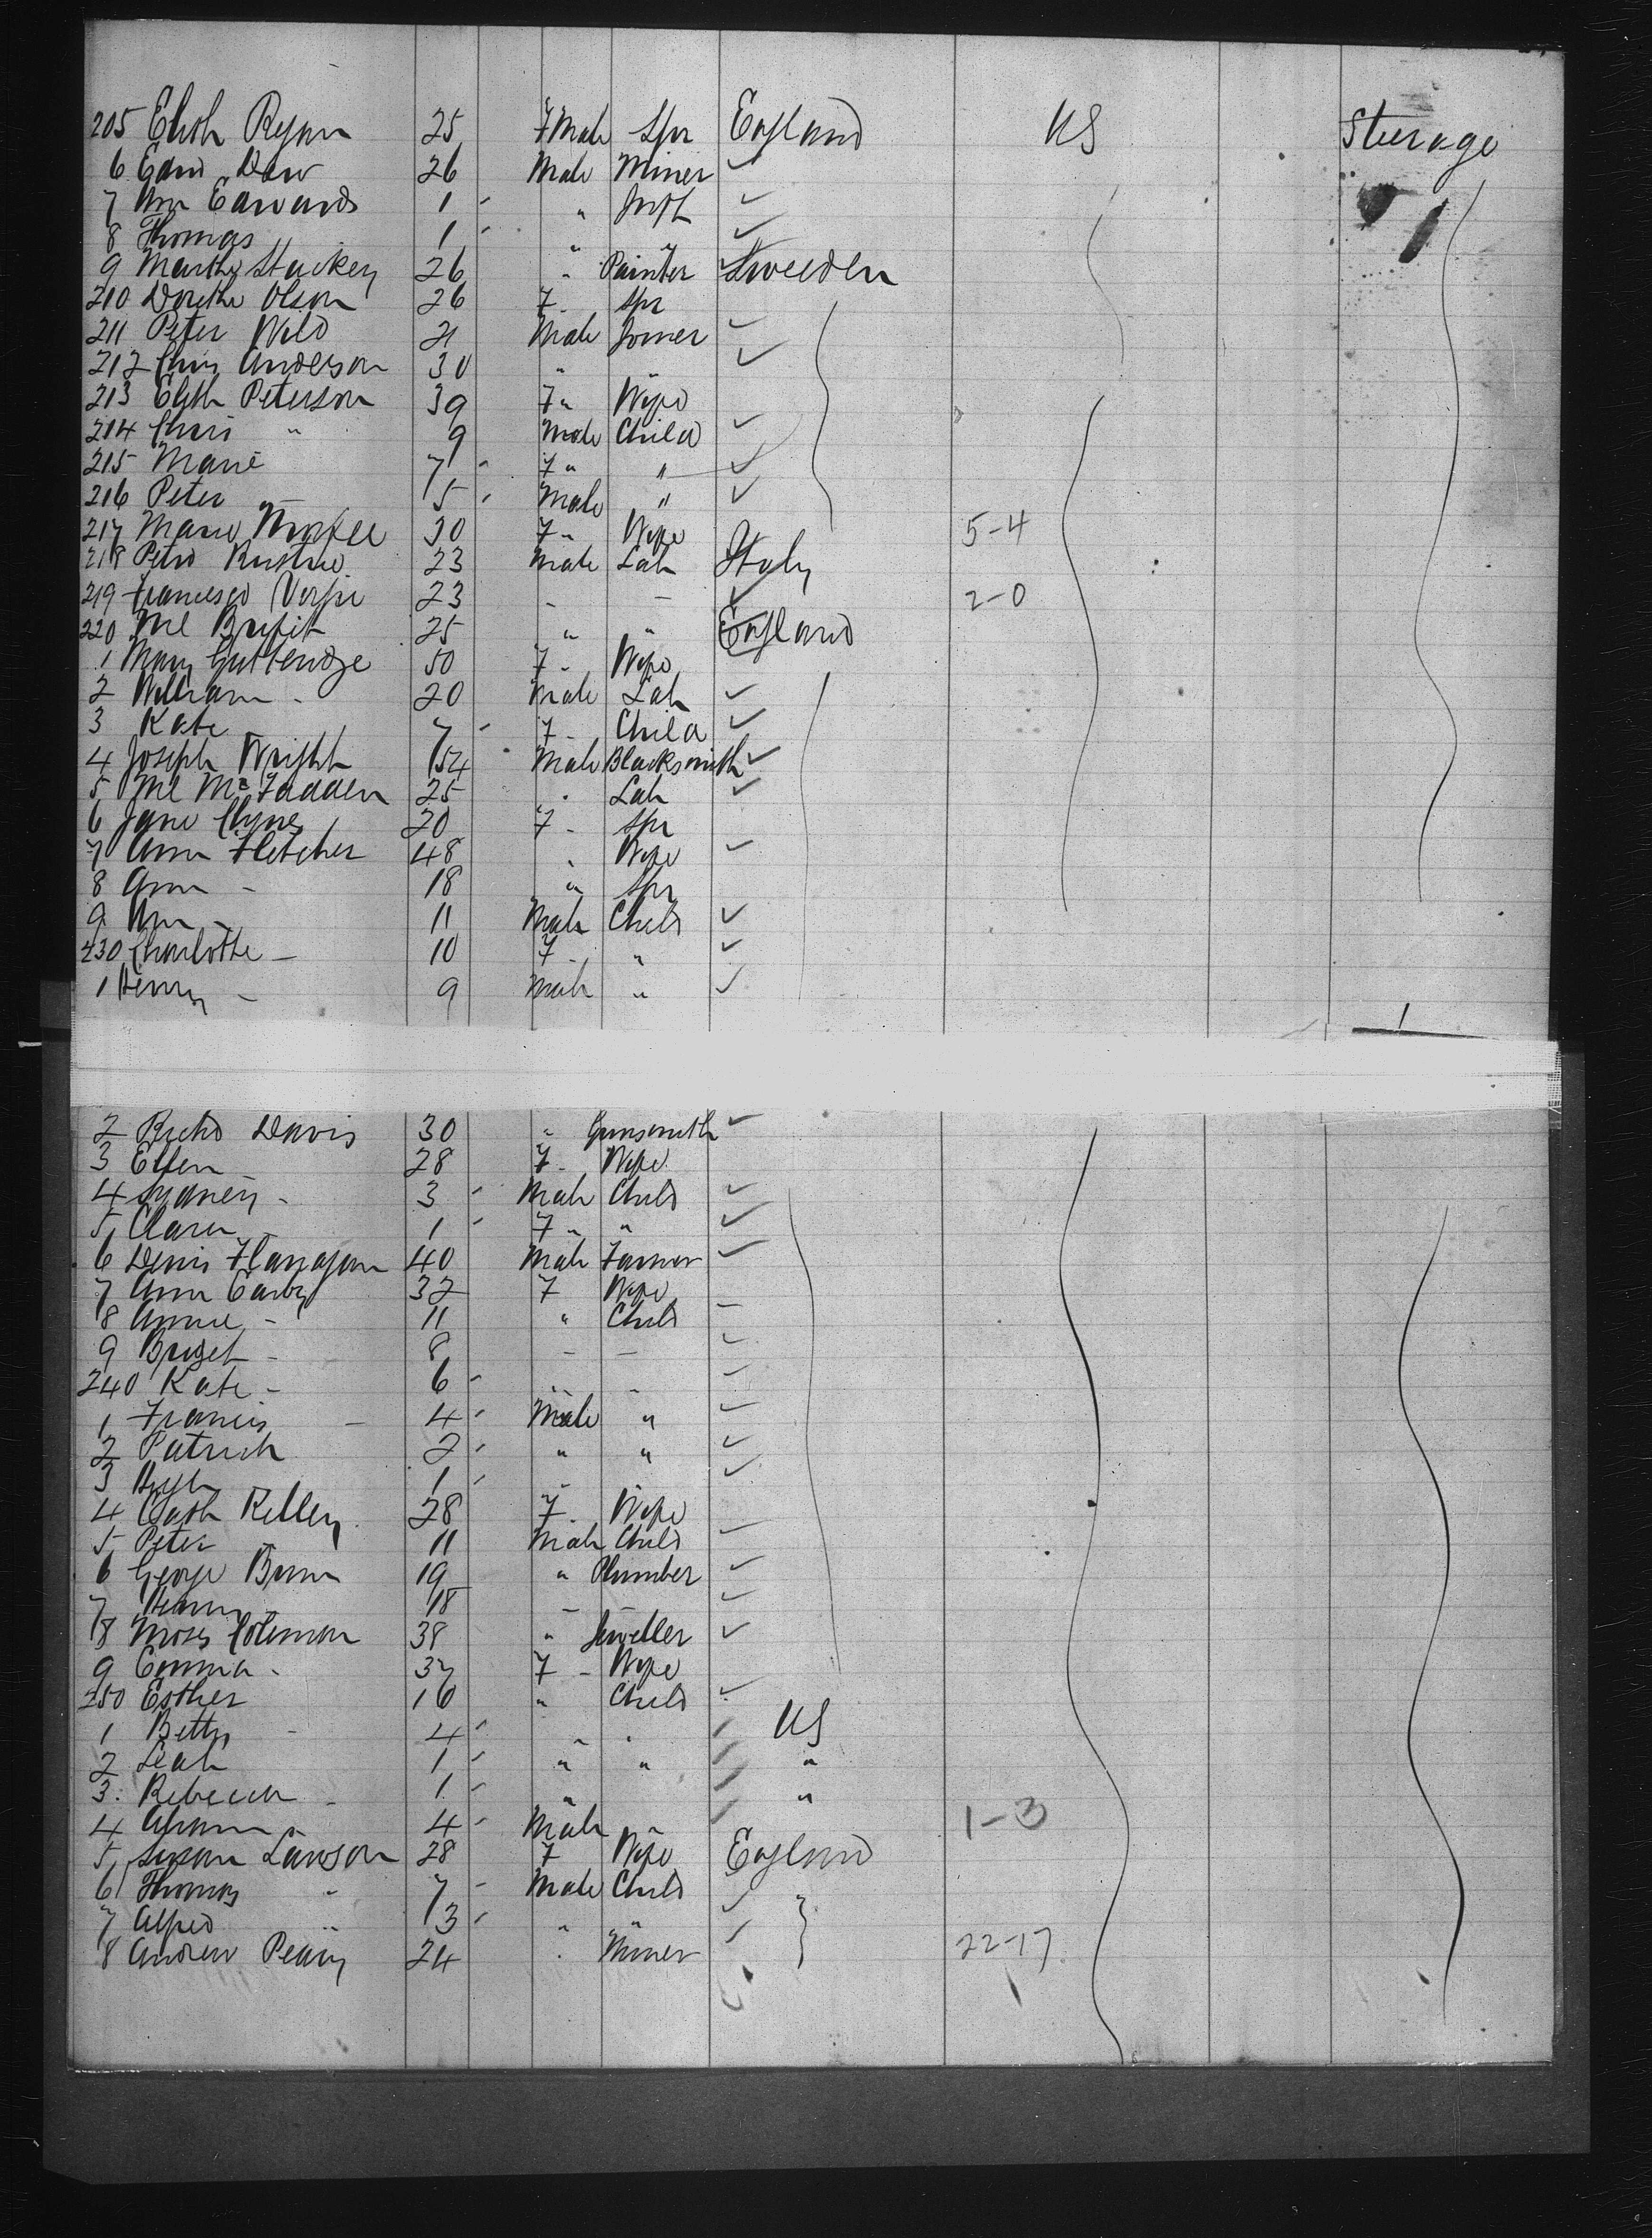 205 Elizth Ryan 25 7Male Spr England US Steerage
6 Edwd Daw 26 Male Miner ✓
7 Wm Edwards 1 " Inft ✓
8 Thomas " 1 " " ✓
9 Stuckey 26 " Painter Sweeden
210 Dorethe Olson 26 7 - Spr
211 Peter Wild 21 Male Joiner ✓
212 Chris Anderson 30 " " ✓
213 Elizth Peterson 39 7 " Wife
214 Chris " 9 Male Child ✓
215 Marie 7 7 " " ✓
216 Peter 5 Male " ✓
217 Marie 30 7 " Wife 5-4
218 Petro 23 Male Lab Italy
219 Francesco 23 - - ✓ 2-0
220 Ml 25 " " England
1 Mary Gutteridge 50 7 - Wife
2 William - 20 Male Lab ✓
3 Kate 7 7 - Child ✓
4 Joseph Wright 54 Male Blacksmith ✓
5 Ml McFadden 25 " Lab ✓
6 Jane Clyne 20 7 - Spr
7 Ann Fletcher 48 " Wife ✓
8 Ann - 18 " Spr
9 Wm - 11 Male Child ✓
230 Charlotte - 10 7 - " ✓
1 Henry - 9 Male " ✓
2 Richd Davis 30 " Gunsmith ✓
3 Ellen 28 7 - Wife
4 Sydney - 3 Male Child ✓
5 Clara - 1 7 " " ✓
6 Denis Flanagan 40 Male Farmer ✓
7 Ann 32 7 Wife
8 Annie - 11 " Child
9 Bridget - 8 - - ✓
240 Kate - 6 " - ✓
1 Francis - 4 Male " ✓
2 Patrick 2 " " ✓
3 Hugh 1 " ✓
4 Cath Kelley 28 7 Wife
5 Peter 11 Male Child ✓
6 George 19 " Plumber ✓
7 Henry - 18 - - ✓
8 Moses Coleman 38 " Jeweller ✓
9 Emma - 37 7 - Wife
250 Esther 10 " Child ✓
1 Betty - 4 " " US
2 Leah 1 " " "
3 Rebecca - 1 " "
4 - 4 Male " 1-3
5 Susan Lawson 28 7 Wife England
6 Thomas " 7 Male Child ✓
7 Alfred " 3 " " ✓
8 Andrew 24 " Miner 22-17